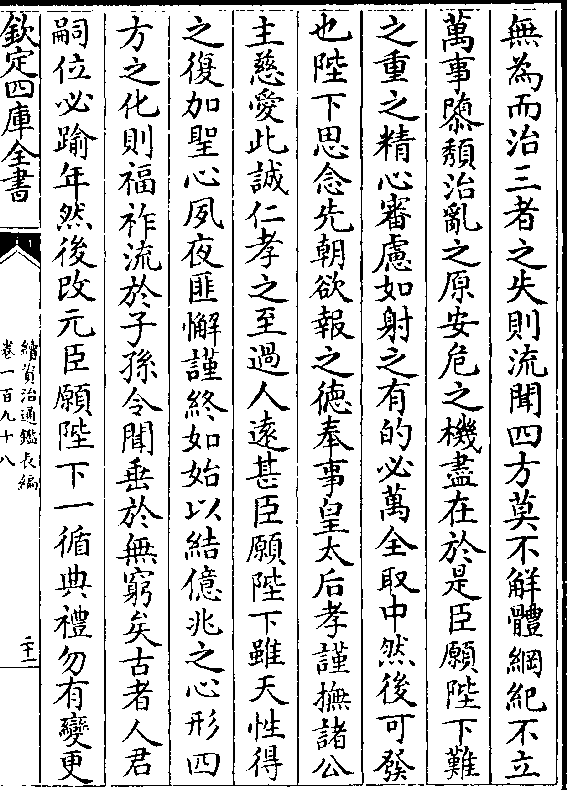 無為而治三者之失則流聞四方莫不解體綱紀不立
萬事隳頽治亂之原安危之機盡在於是臣願陛下難
之重之精心審慮如射之有的必萬全取中然後可發
也陛下思念先朝欲報之徳奉事皇太后孝謹撫諸公
主慈愛此誠仁孝之至過人遠甚臣願陛下雖天性得
之復加聖心夙夜匪懈謹終如始以結億兆之心形四
方之化則福祚流於子孫令聞垂於無窮矣古者人君
嗣位必踰年然後改元臣願陛下一循典禮勿有變更
欽定四庫全書
續資治通鑑長編
卷一百九十八
二十二